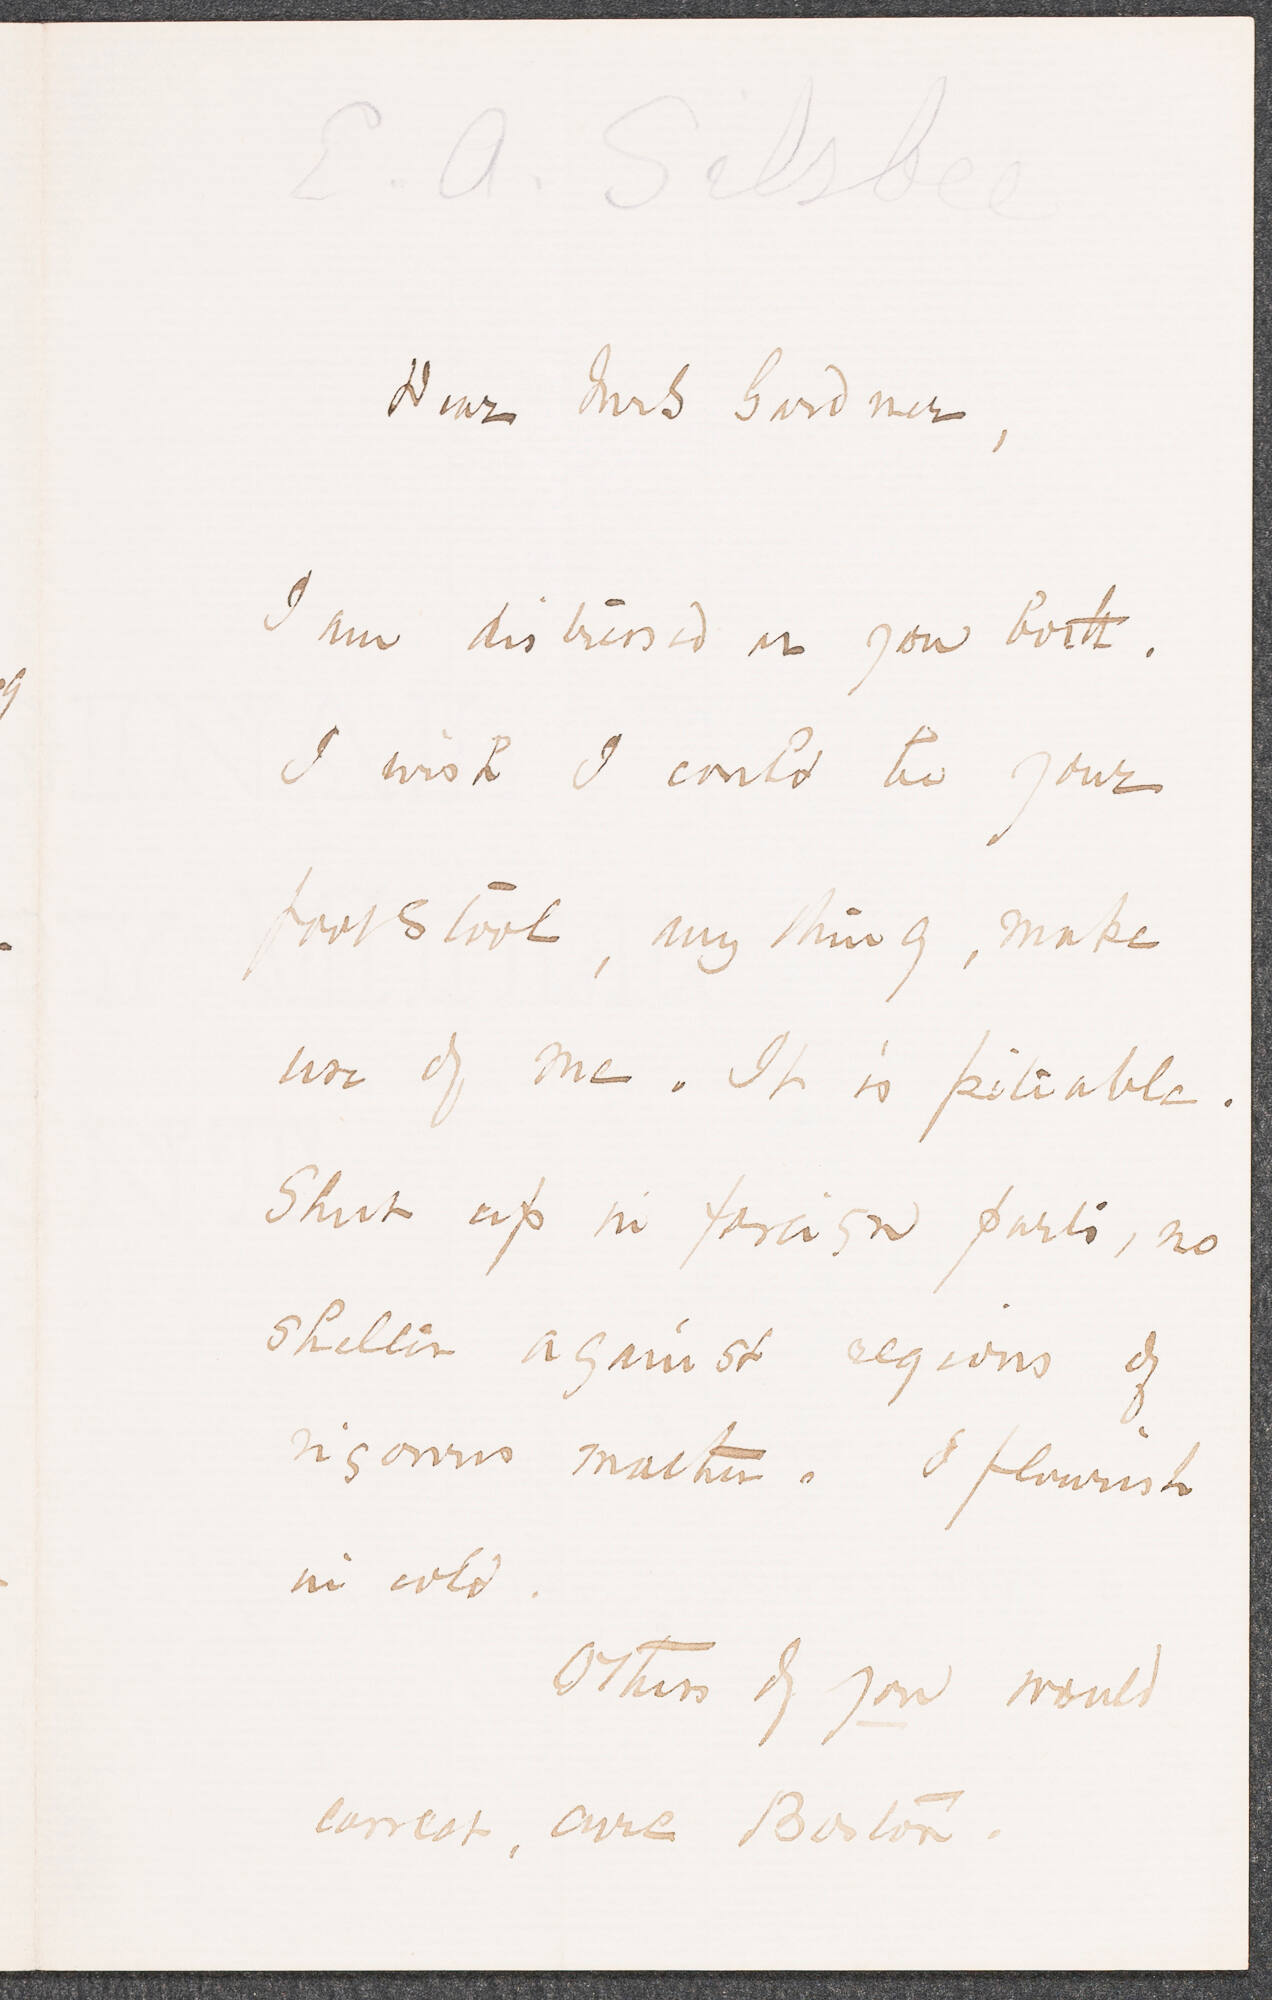 E. A. Silsbee
Dear Mrs Gardner,
I am distressed you both.
I wish I could be your
footstool, any thing, make
use of me. It is pitiable.
Shut up in foreign parts, no
shelter against regions of
rigorous matter. I flourish
in cold.
Others of you would
correct, cure Boston.